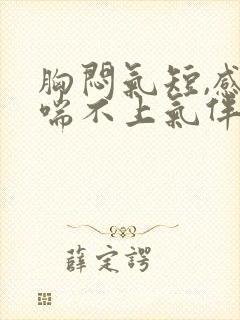 胸悶氣短,感
喘不上氣伴
薛定諤